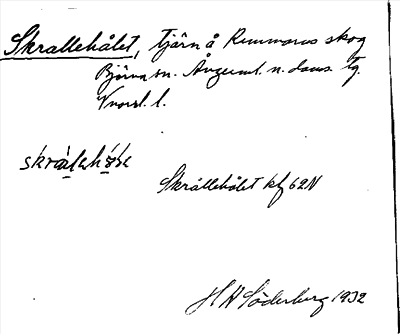 Skrallehålet, tjärn å Remmarns skog
Björna sn. Ångerml. n. doms. tg.
Vnorrl. l.
skrálehóle
Skrállehålet kf 62N
H H Söderberg 1932